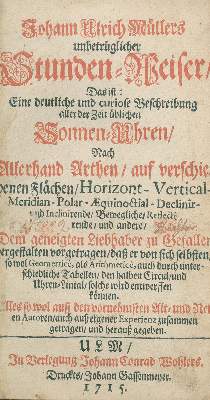 Johann Ulrich Müllers
unbetrüglicher
Stunden-Weiser/
Das ist:
Eine deutliche und curiose Beschreibung
aller der Zeit üblichen
Sonnen-Uhren/
Nach
Allerhand Arthen/ auf verschie-
denen Flächen/ Horizont- Vertical-
Meridian- Polar- Æquinoctial- Declinir-
und Inclinirende/ Bewegliche/ Reflecti-
rende/ und andere/
Dem geneigten Liebhaber zu Gefallen
dergestalten vorgetragen/ daß er von sich selbsten/
so wol Geometricè, als Arithmeticè, auch durch unter-
schiedliche Tabellen/ den halben Circul/ und
Uhren-Lineal/ solche wird entwerffen
können.
Alles so wol auß den vornehmsten Alt- und Neu-
en Autoren/ auch auß eigener Experienz zusammen
getragen/ und herauß gegeben.
ULM/
In Verlegung Johann Conrad Wohlers.
Druckts/ Johann Gassenmeyer.
1715.